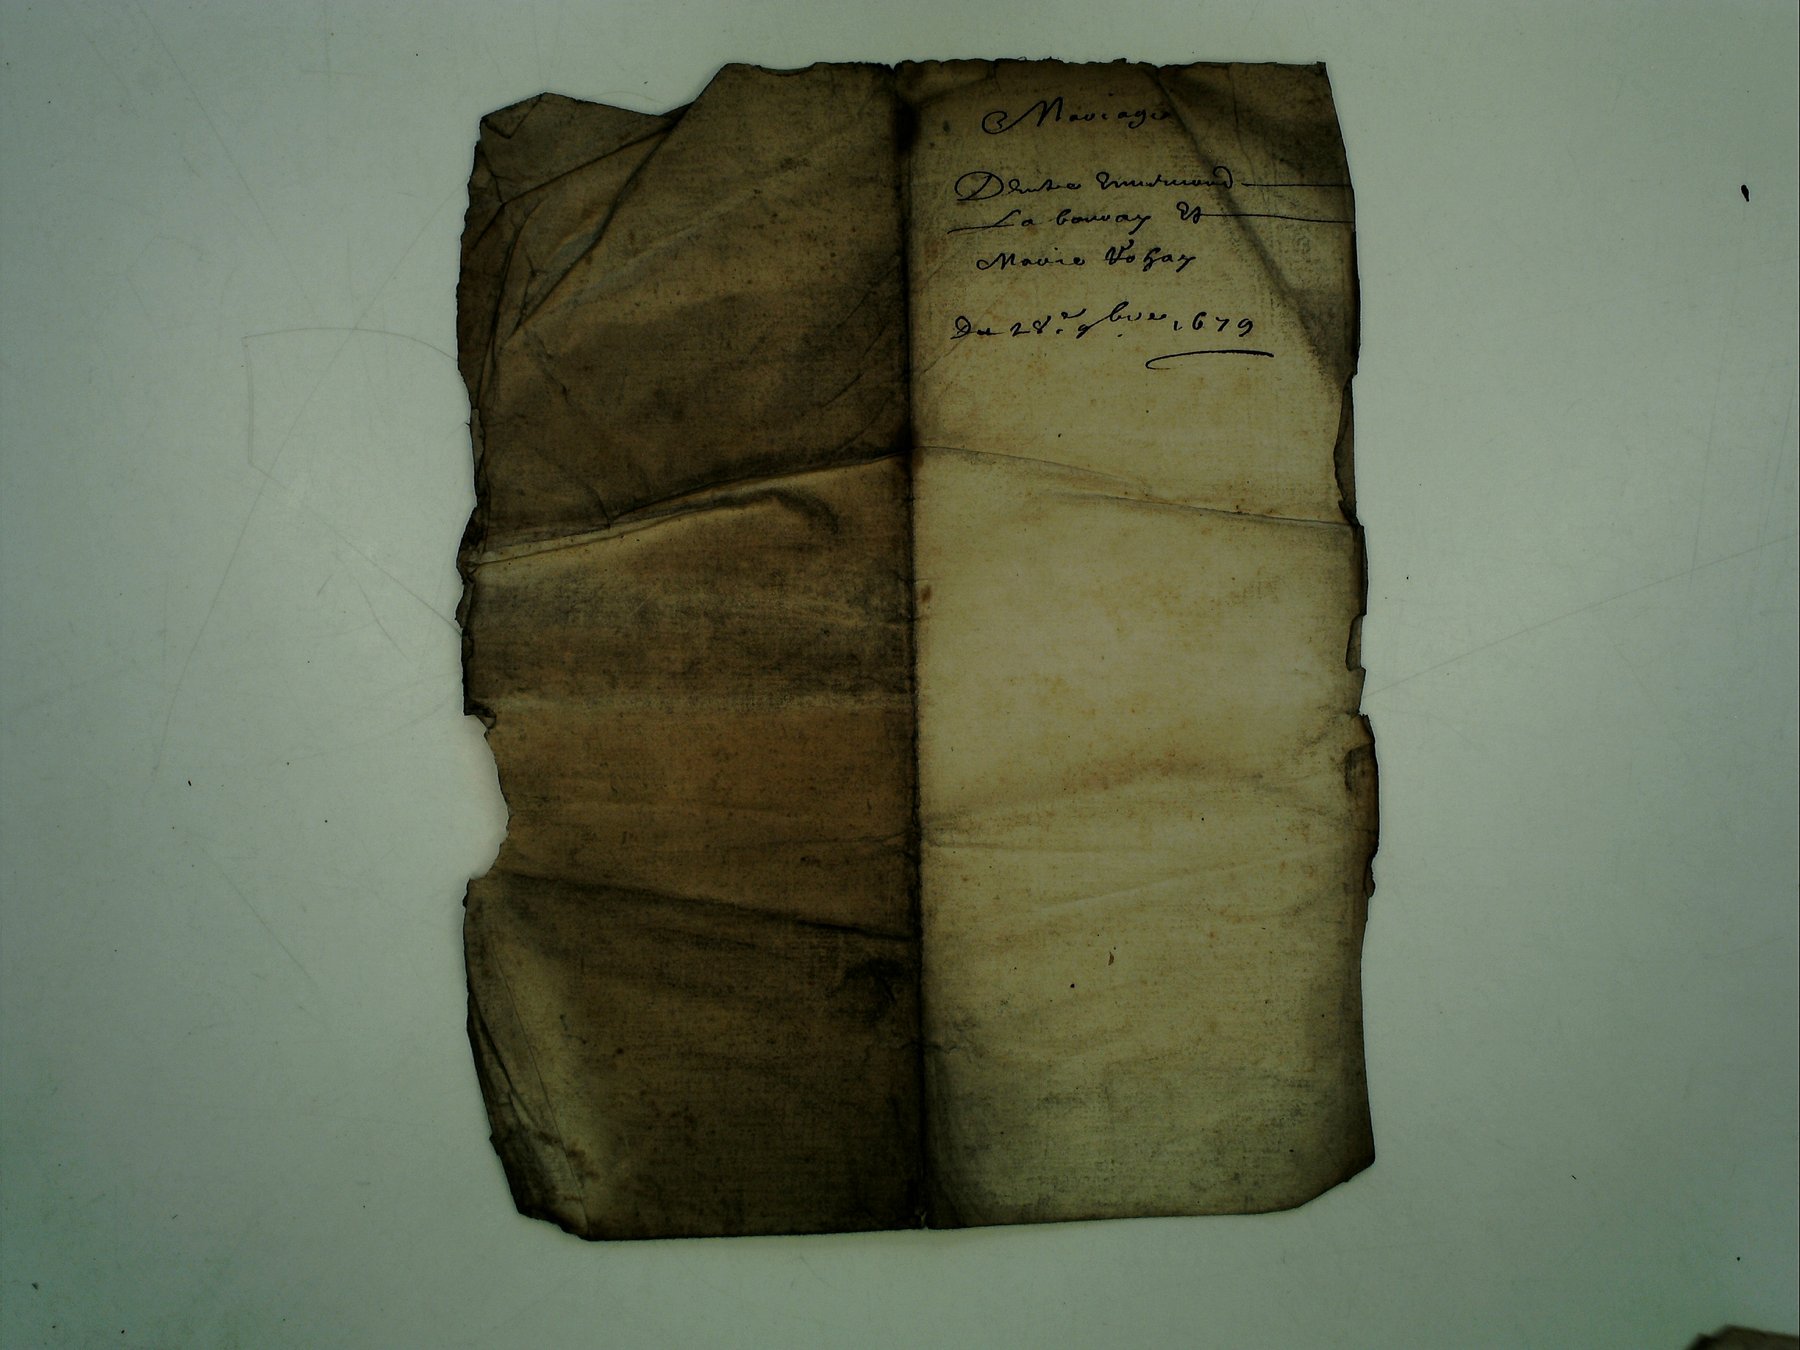 Mariage
Dentre Emmond
La bouray Et
Marie Vohay
Du 28.e 9bre 1679